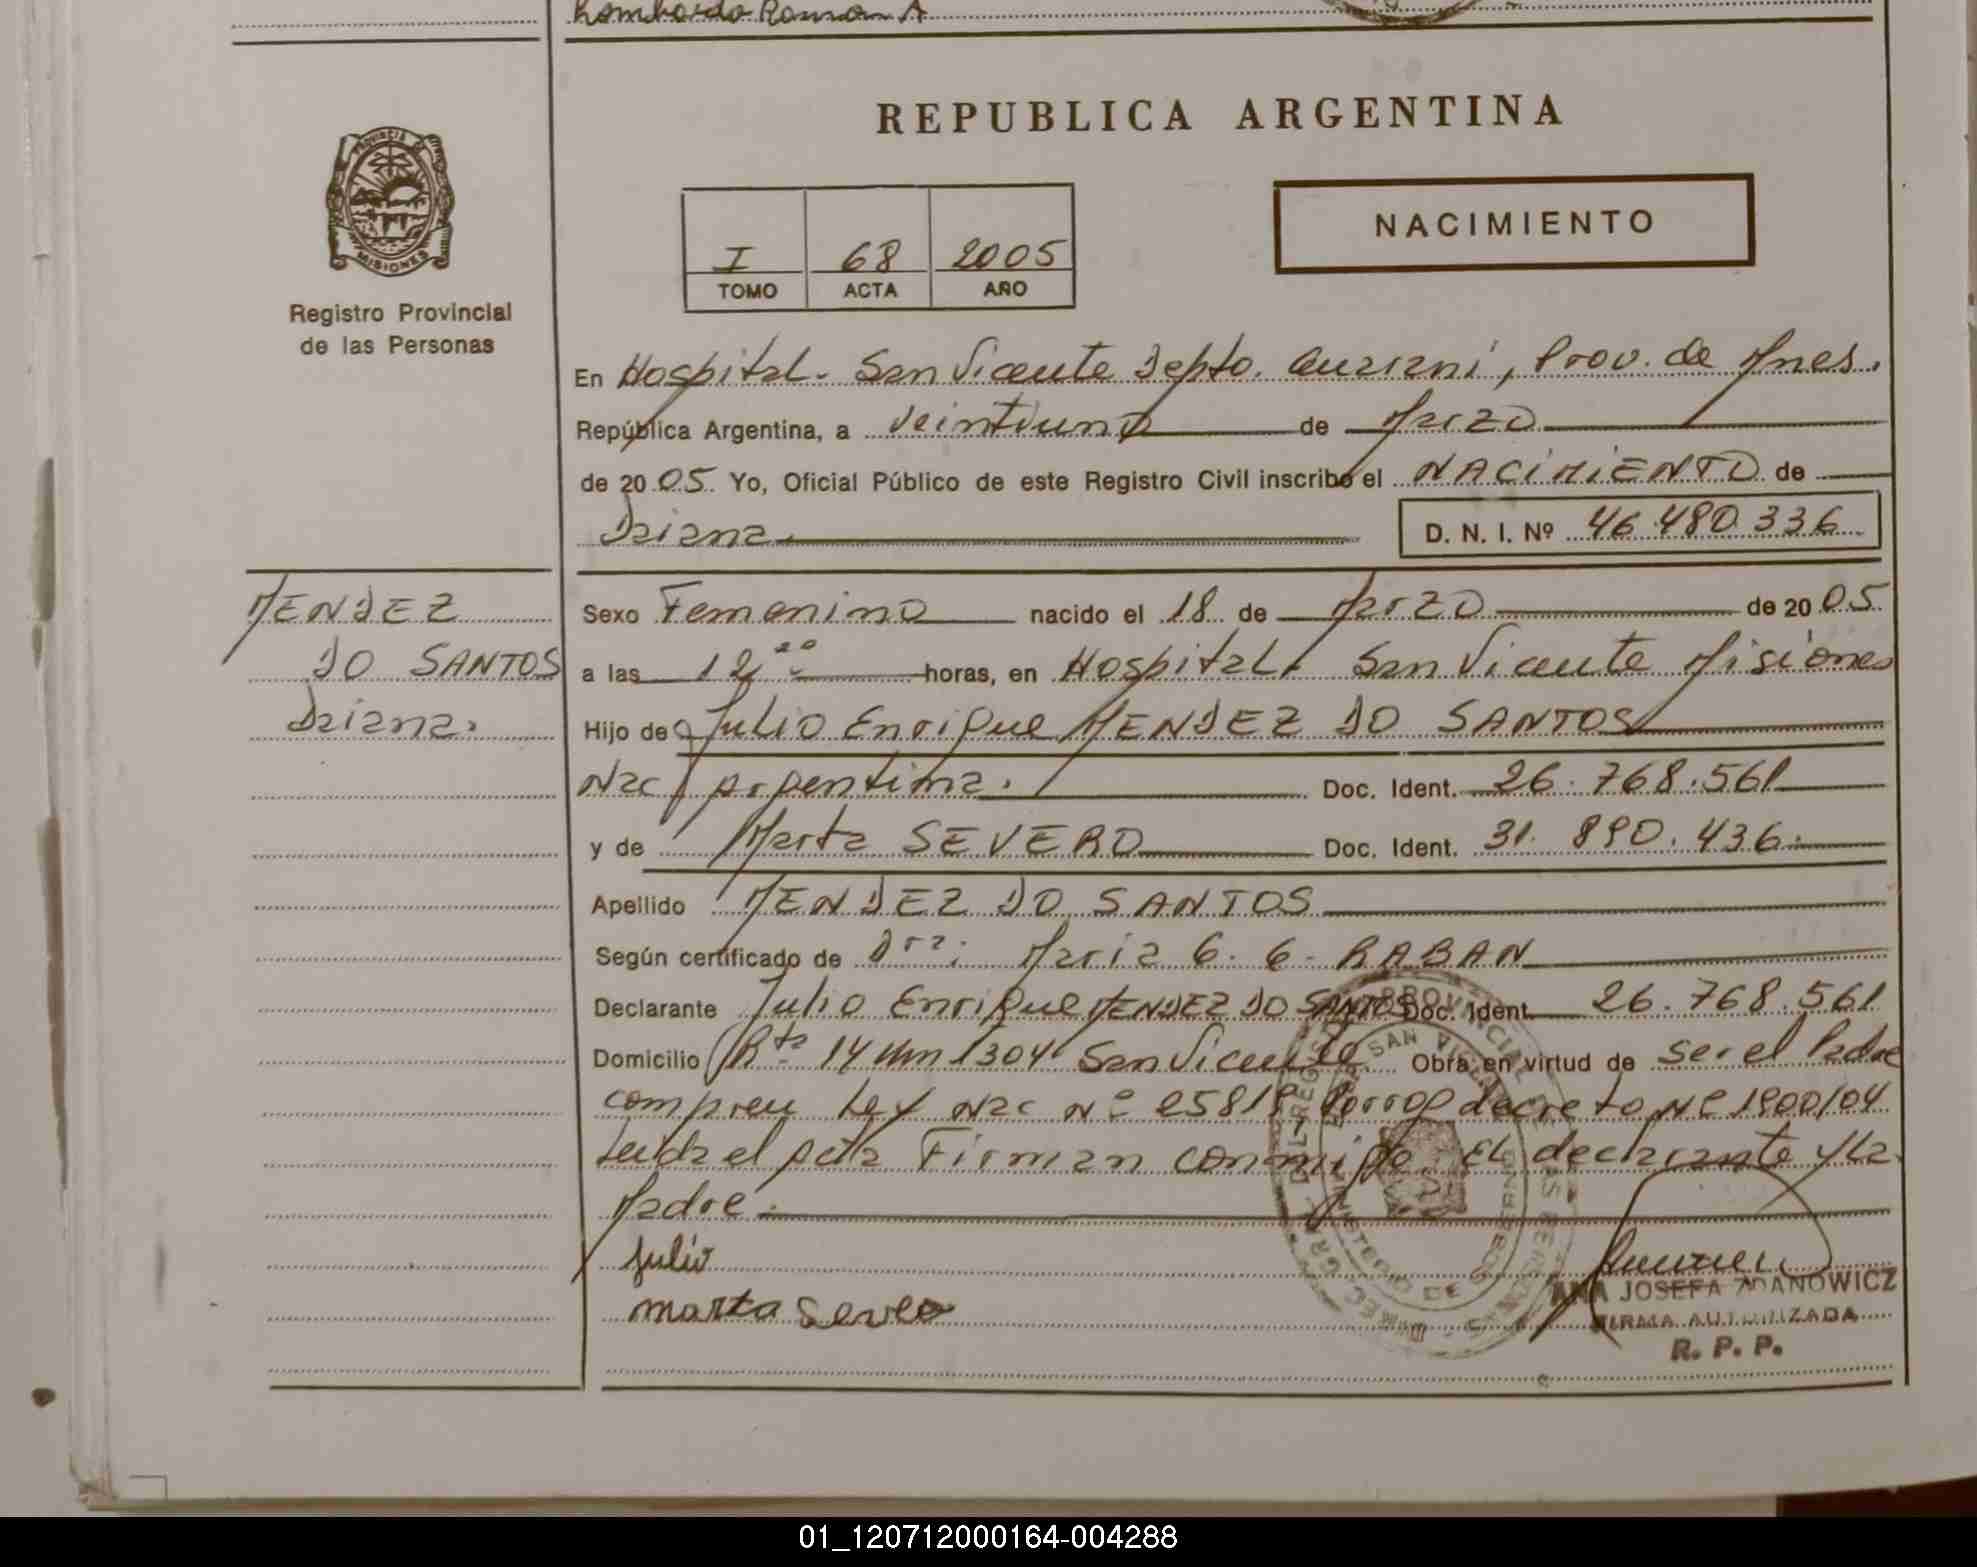 Lombardo Roman A
REPUBLICA ARGENTINA
PROVINCIA DE
MISIONES
Registro Provincial
de las Personas
NACIMIENTO
I 68 2005
TOMO ACTA AÑO
En Hospital. San Vicente Depto. Guarani, Prov. de Mnes.
República Argentina, a veintiuno de Marzo
de 2005 Yo, Oficial Público de este Registro Civil inscribo el NACIMIENTO de
Daiana D. N. I. Nº 46.480.336
MENDEZ
DO SANTOS
Daiana.
Sexo Femenino nacido el 18 de Marzo de 2005
a las 12 horas, en Hospital. San Vicente Misiones
Hijo de Julio Enrique MENDEZ DO SANTOS
Nac Argentina. Doc. Ident. 26.768.561
y de Marta SEVERO Doc. Ident. 31.890.436.
Apellido MENDEZ DO SANTOS
Según certificado de Dra: Maria G. G. RABAN
Declarante Julio Enrique MENDEZ DO SANTOS Doc. Ident. 26.768.561
Domicilio Rta 14 Km 1304 San Vicente Obra en virtud de ser el Padre
Ley Nac Nº 25819 decreto Nº 1900/04
el acta Firman conmigo. El declarante y la
Madre.
Julio
Marta Severo
ANA JOSEFA ZDANOWICZ
FIRMA AUTORIZADA
R. P. P.
01_120712000164-004288